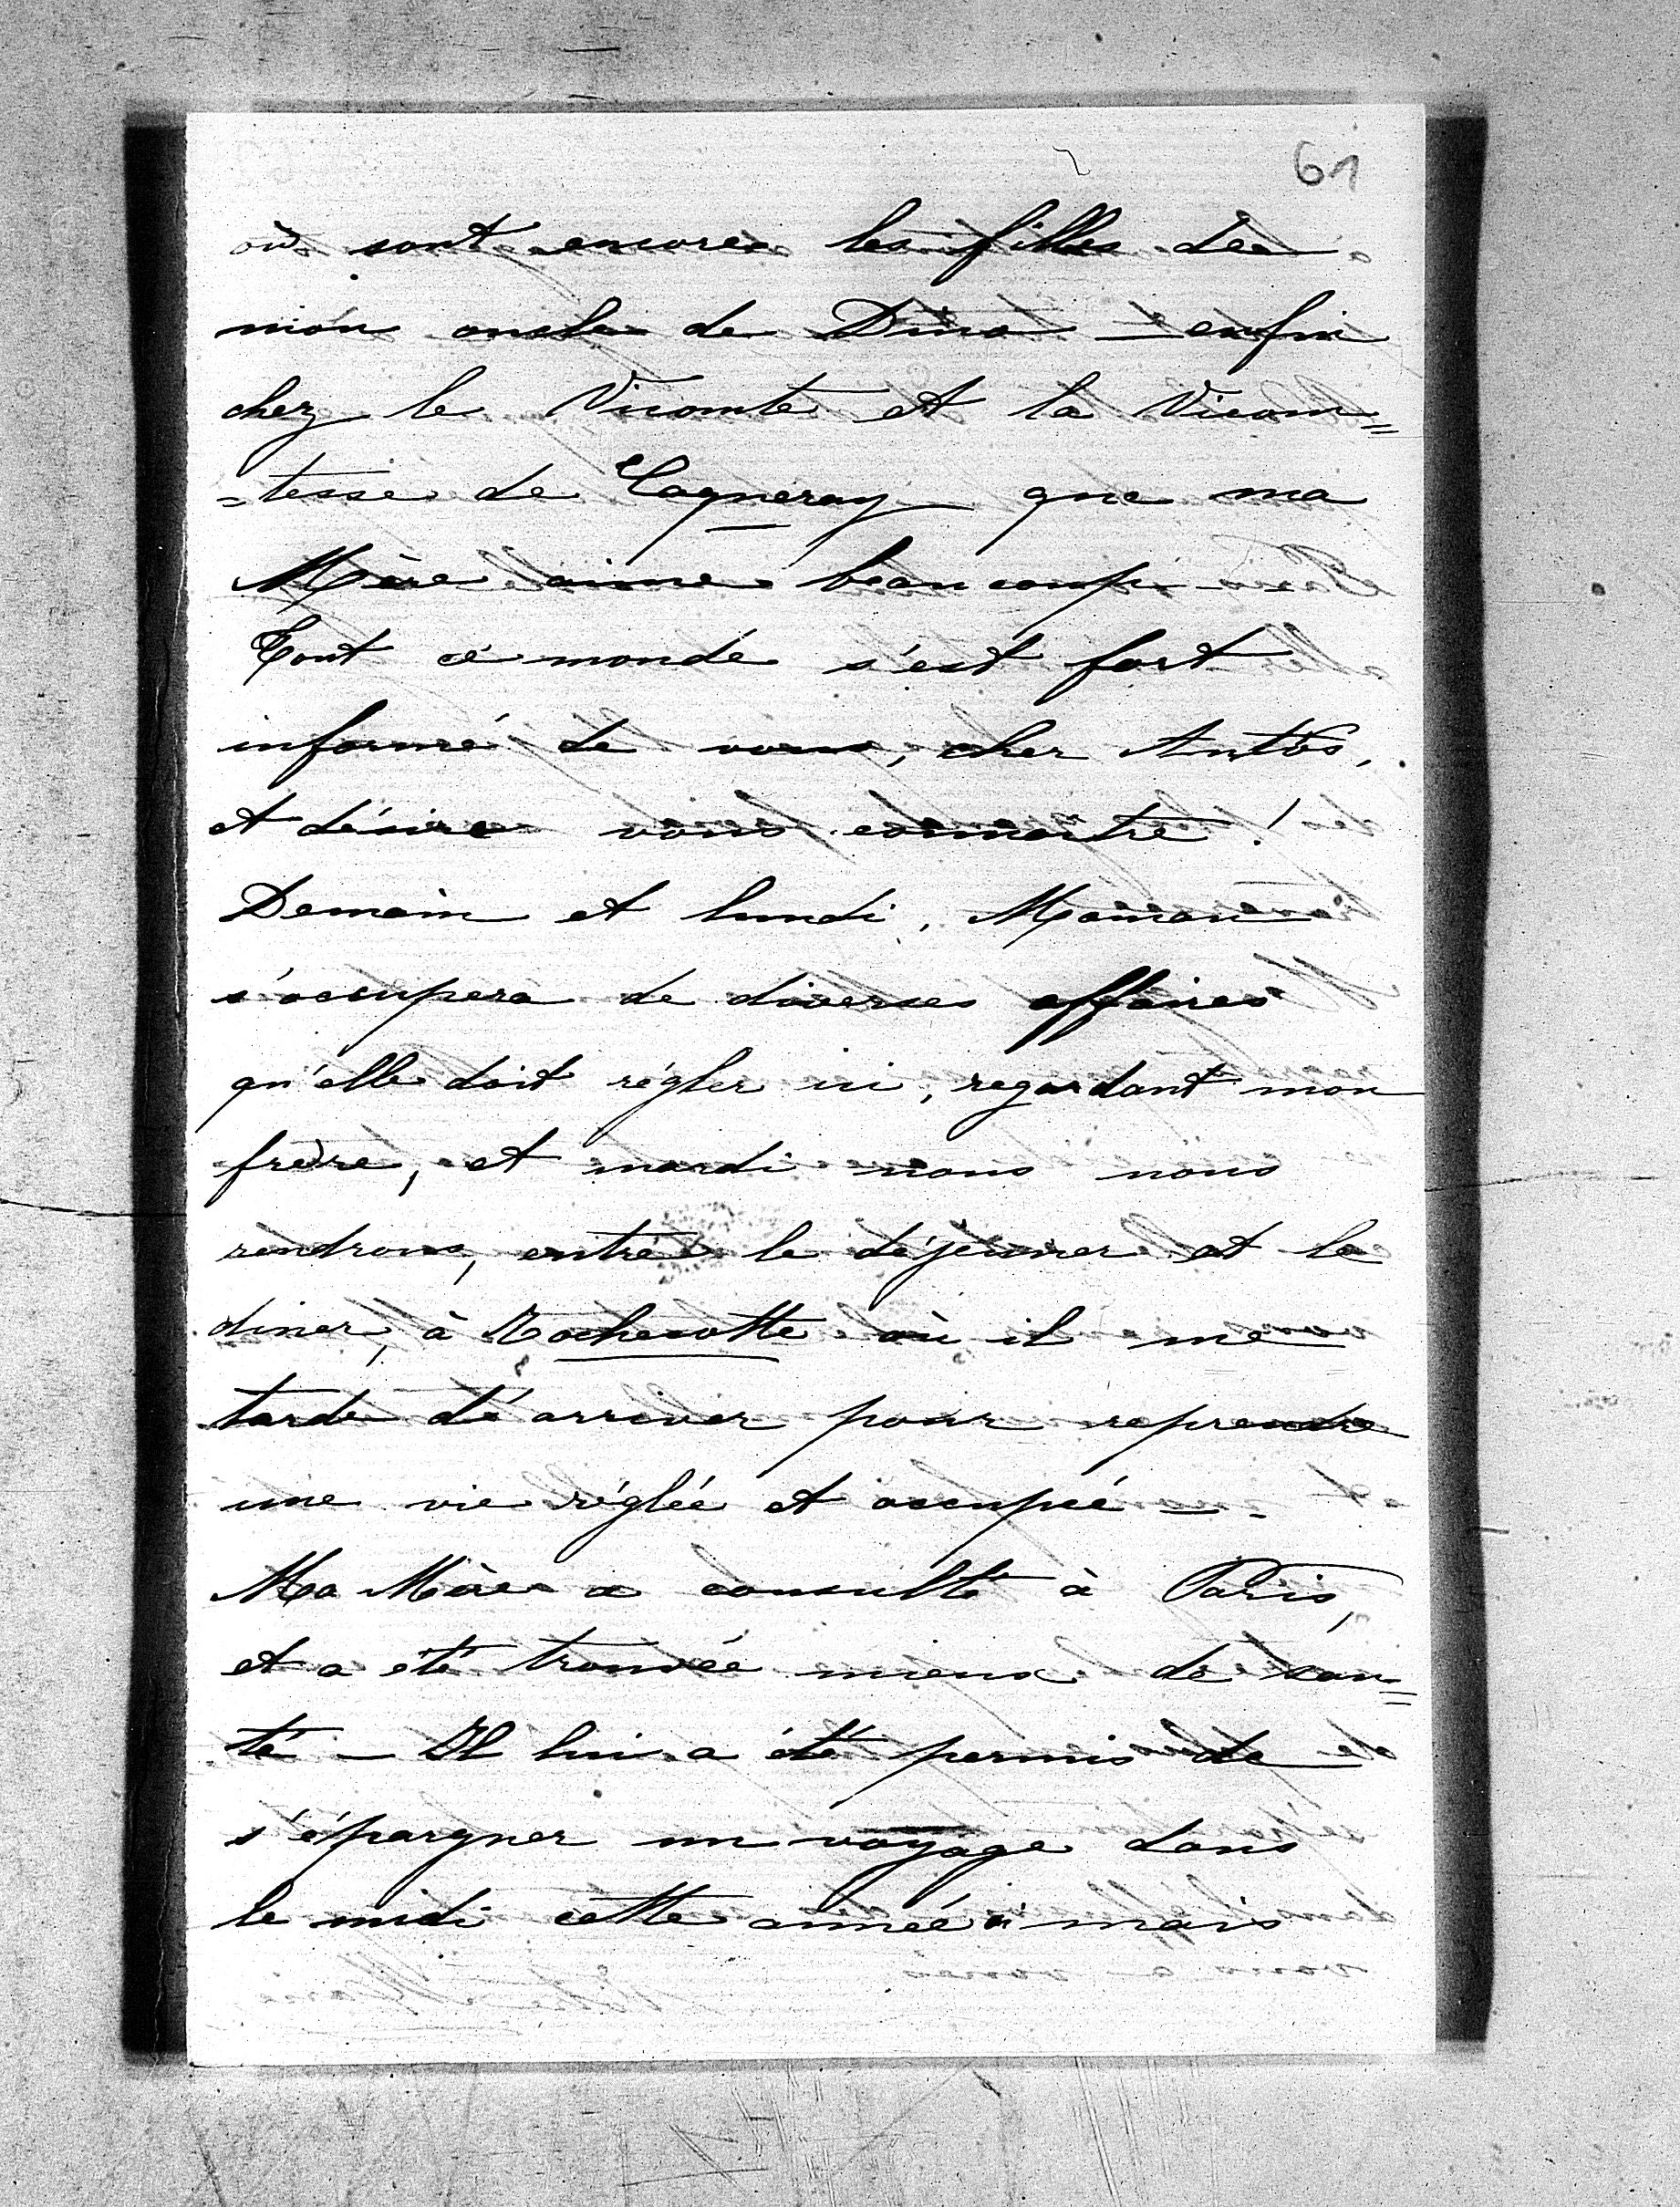 61
où sont encore les filles de
mon oncle de Dino — enfin
chez le Vicomte et la Vicom=
=tesse de Cogneray que ma
Mère aime beaucoup. —
Tout ce monde s'est fort
informé de vous, cher Antôs,
et désire vous connaître !
Demain et lundi, Maman
s'occupera de diverses affaires
qu'elle doit régler ici, regardant mon
frère, et mardi nous nous
rendrons, entre le déjeuner et le
diner, à Rochecotte où il me
tarde d'arriver pour reprendre
une vie réglée et occupée —.
Ma Mère a consulté à Paris,
et a été trouvée mieux de san=
té — Il lui a été permis de
s'épargner un voyage dans
le midi cette année ; mais